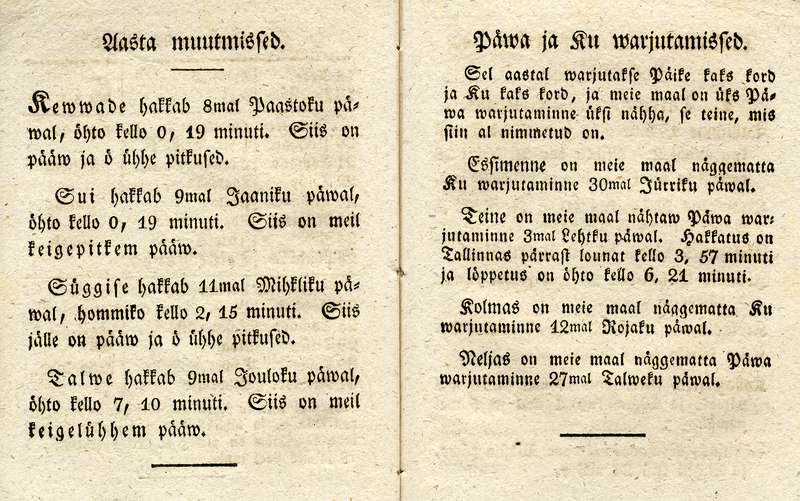 Aasta muutmissed.
Kewwade hakkab 8mal Paastoku pä-
wal, öhto kello 0, 19 minuti. Siis on
pääw ja ö ühhe pitkused.
Sui hakkab 9mal Jaaniku päwal,
öhto kello 0, 19 minuti. Siis on meil
keigepitkem pääw.
Süggise hakkab 11mal Mihkliku pä-
wal, hommiko kello 2, 15 minuti. Siis
jälle on pääw ja ö ühhe pitkused.
Talwe hakkab 9mal Jouloku päwal,
öhto kello 7, 10 minuti. Siis on meil
keigelühhem pääw.
Päwa ja Ku warjutamissed.
Sel aastal warjutakse Päike kaks kord
ja Ku kaks kord, ja meie maal on üks Pä-
wa warjutaminne üksi nähha, se teine, mis
siin al nimmetud on.
Essimenne on meie maal näggematta
Ku warjutaminne 30mal Jürriku päwal.
Teine on meie maal nähtaw Päwa war-
jutaminne 3mal Lehtku päwal. Hakkatus on
Tallinnas pärrast lounat kello 3, 57 minuti
ja löppetus on öhto kello 6, 21 minuti.
Kolmas on meie maal näggematta Ku
warjutaminne 12mal Rojaku päwal.
Neljas on meie maal näggematta Päwa
warjutaminne 27mal Talweku päwal.